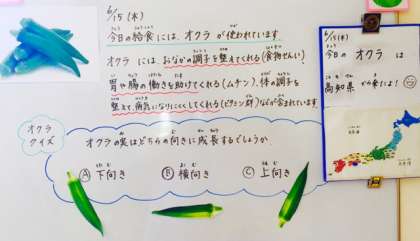 6/15(木)
今日の給食には、オクラが使われています。
オクラには、おなかの調子を整えてくれる(食物せんい)
胃や腸の働きを助けてくれる(ムチン)体の調子を
整えて、病気になりにくくしてくれる(ビタミン群)などが含まれています
オクラ
クイズ
オクラの実はどちらの向きに成長するでしょうか。
Ⓐ下向き
Ⓑ横向き
Ⓒ上向き
6/15(木)
今日のオクラは
高知県から来たよ!